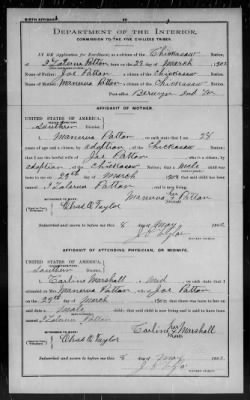 BIRTH AFFIDAVIT.
DEPARTMENT OF THE INTERIOR,
COMMISSION TO THE FIVE CIVILIZED TRIBES.
IN RE Application for Enrollment, as a citizen of the Chickasaw Nation,
of Patton, born on the 29 day of March, 1902
Name of Father: Joe Patton a citizen of the Chickasaw Nation.
Name of Mother: Manerva Patton a citizen of the Chickasaw Nation.
Post-office Berwyn Ind Ter
AFFIDAVIT OF MOTHER.
UNITED STATES OF AMERICA,
Southern District.
I, Manerva Patton, on oath state that I am 28
years of age and a citizen, by adoption, of the Chickasaw Nation;
that I am the lawful wife of Joe Patton, who is a citizen, by
adoption of the Chickasaw Nation; that a male child was
born to me on 29th day of March, 1902, that said child has been named
Patton, and is now living.
Manerva Patton
her
mark
Chas A Taylor
Subscribed and sworn to before me this 8 day of May, 1902.
AFFIDAVIT OF ATTENDING PHYSICIAN, OR MIDWIFE.
UNITED STATES OF AMERICA,
Southern District.
I, Marshall, a mid, on oath state that I
attended on Mrs. Manerva Patton, wife of Joe Patton
on the 29th day of March, 1902; that there was born to her on
said date a male child; that said child is now living and is said to have been
named Patton
her
Marshall
mark
Chas A Taylor
Subscribed and sworn to before me this 8 day of May, 1902.